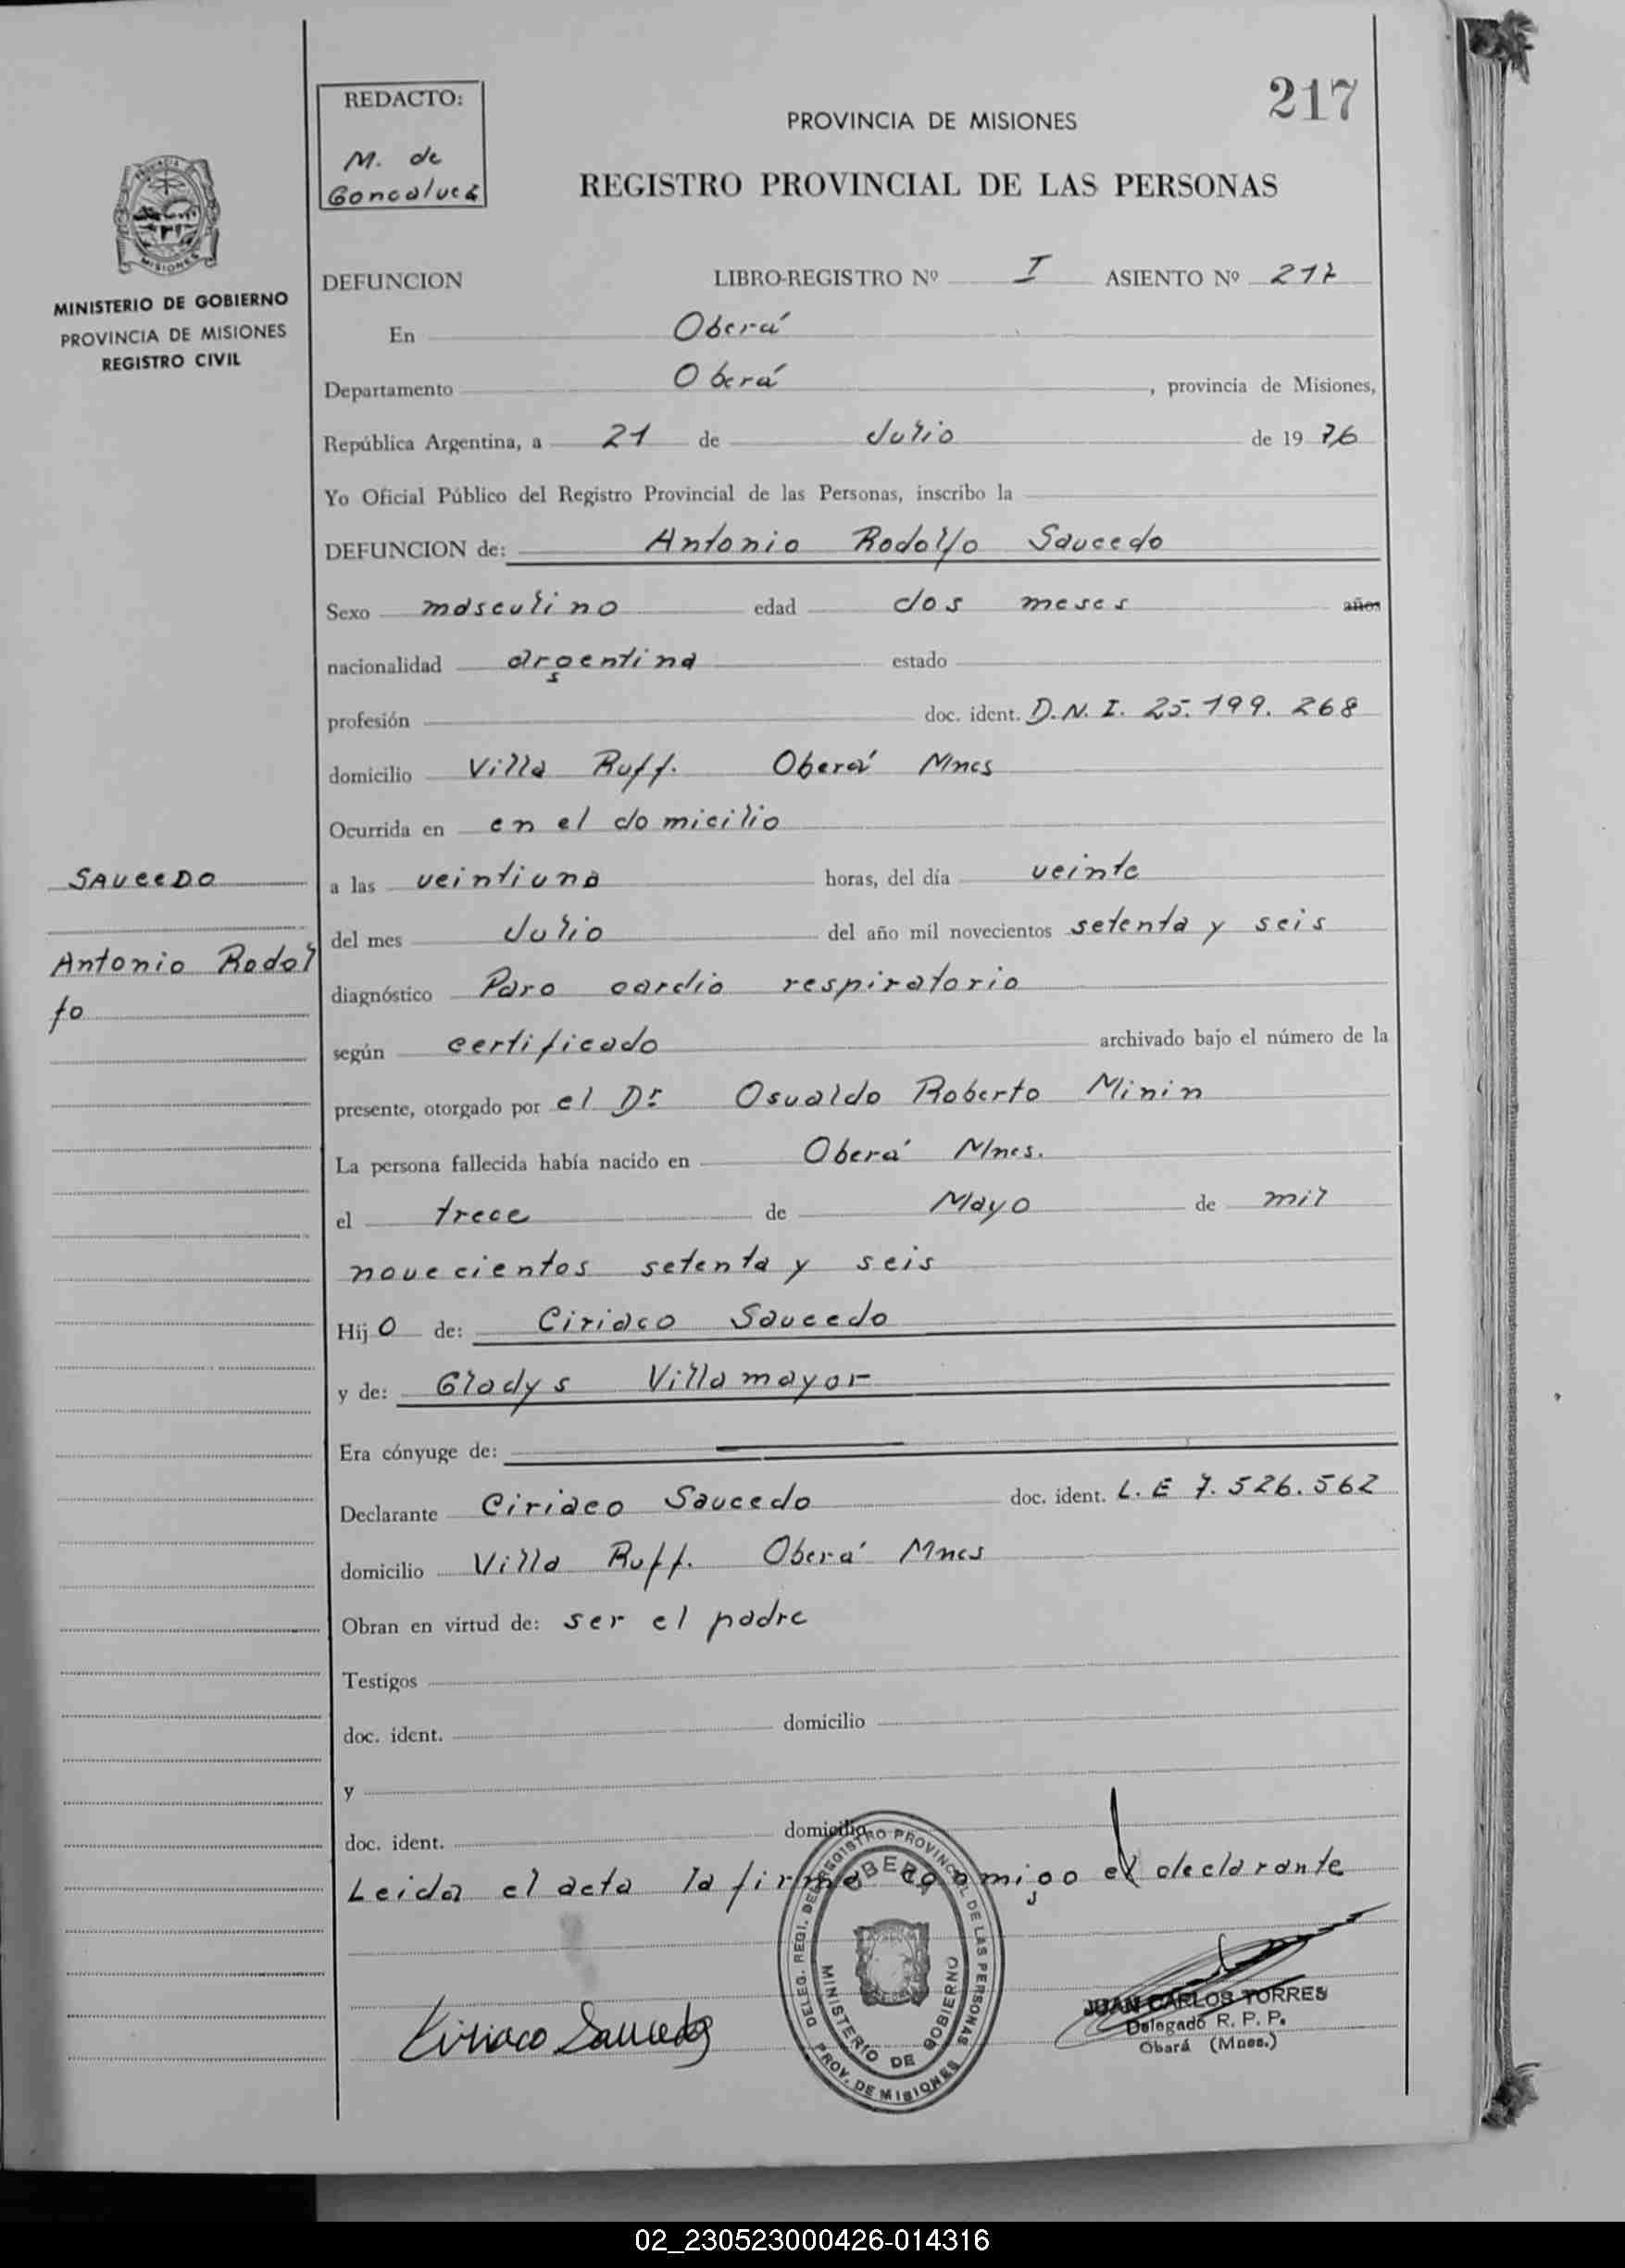 217
REDACTO:
M. de
Goncalues
PROVINCIA DE MISIONES
REGISTRO PROVINCIAL DE LAS PERSONAS
MINISTERIO DE GOBIERNO
PROVINCIA DE MISIONES
REGISTRO CIVIL
DEFUNCION LIBRO-REGISTRO Nº I ASIENTO Nº 217
En Oberá
Departamento Oberá, provincia de Misiones,
República Argentina, a 21 de Julio de 19 76
Yo Oficial Público del Registro Provincial de las Personas, inscribo la
DEFUNCION de: Antonio Rodolfo Saucedo
Sexo masculino edad dos meses años
nacionalidad argentina estado
profesión doc. ident. D.N.I. 25.199.268
domicilio Villa Ruff. Oberá Mnes
Ocurrida en en el domicilio
SAUCEDO
Antonio Rodol
fo
a las veintiuna horas, del día veinte
del mes Julio del año mil novecientos setenta y seis
diagnóstico Paro cardio respiratorio
según certificado archivado bajo el número de la
presente, otorgado por el Dr Osualdo Roberto Minin
La persona fallecida había nacido en Oberá Mnes.
el trece de Mayo de mil
novecientos setenta y seis
Hijo de: Ciriaco Saucedo
y de: Gladys Villamayor
Era cónyuge de:
Declarante Ciriaco Saucedo doc. ident. L.E 7.526.562
domicilio Villa Ruff. Oberá Mnes
Obran en virtud de: ser el padre
Testigos
doc. ident. domicilio
y
doc. ident. domicilio
Leida el acta la firma conmigo el declarante
DELEG. REGI. DEL REGISTRO PROVINCIAL DE LAS PERSONAS
OBERA
MINISTERIO DE GOBIERNO
PROV. DE MISIONES
Ciriaco Saucedo
JUAN CARLOS TORRES
Delegado R. P. P.
Oberá (Mnes.)
02_230523000426-014316